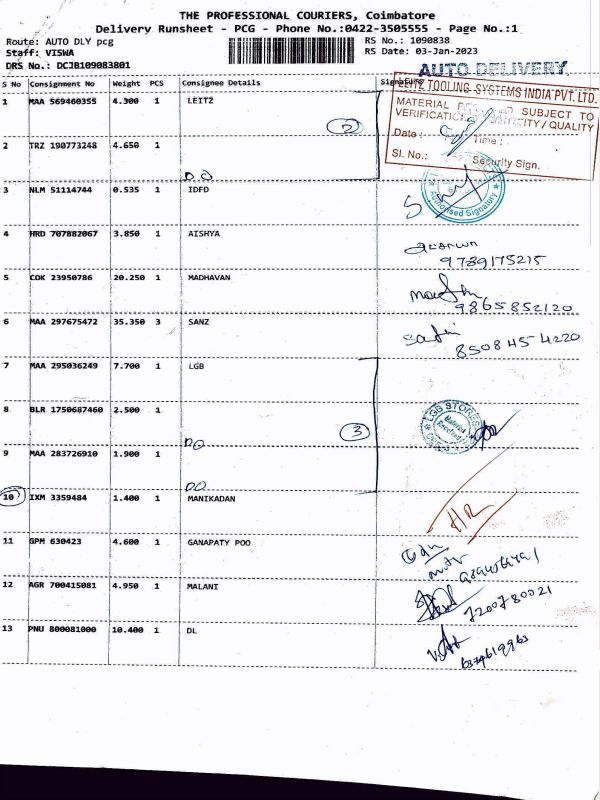 THE PROFESSIONAL COURIERS, Coimbatore
Delivery Runsheet - PCG - Phone No.:0422-3505555 - Page No.:1
Route: AUTO DLY pcg
RS No.: 1090838
Staff: VISWA
RS Date: 03-Jan-2023
DRS No.: DCJB109083801
AUTO DELIVERY
S No Consignment No Weight PCS Consignee Details Signature
LEITZ TOOLING SYSTEMS INDIA PVT. LTD.
1 MAA 569460355 4.300 1 LEITZ
MATERIAL SUBJECT TO
VERIFICATION QUANTITY / QUALITY
2
Date : Time :
2 TRZ 190773248 4.650 1
Sl. No.: Security Sign.
D.O
3 NLM 51114744 0.535 1 IDFD
Authorised Signatory
4 HRD 707882067 3.850 1 AISHYA
9789175215
5 COK 23950786 20.250 1 MADHAVAN
9865852120
6 MAA 297675472 35.350 3 SANZ
8508454220
7 MAA 295036249 7.700 1 LGB
8 BLR 1750687460 2.500 1
LGB STORES
Material
Received
DO
3
9 MAA 283726910 1.900 1
DO
10 IXM 3359484 1.400 1 MANIKADAN
HR
11 GPM 630423 4.600 1 GANAPATY POO
12 AGR 700415081 4.950 1 MALANI
7200780021
13 PNU 800081000 10.400 1 DL